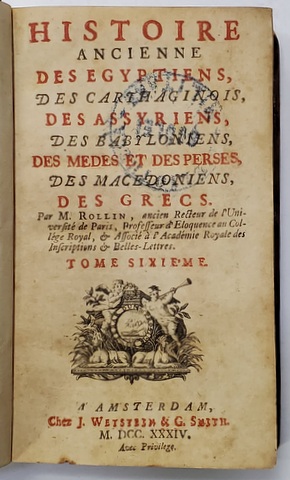 HISTOIRE
ANCIENNE
DES EGYPTIENS,
DES CARTHAGINOIS,
DES ASSYRIENS,
DES BABYLONIENS,
DES MEDES ET DES PERSES,
DES MACEDONIENS,
DES GRECS.
Par M. ROLLIN, ancien Recteur de l'Uni-
versité de Paris, Professeur d'Eloquence au Col-
lège Royal, & Associé à l'Académie Royale des
Inscriptions & Belles-Lettres.
TOME SIXIEME.
A AMSTERDAM,
Chez J. WETSTEIN & G. SMITH.
M. DCC. XXXIV.
Avec Privilege.